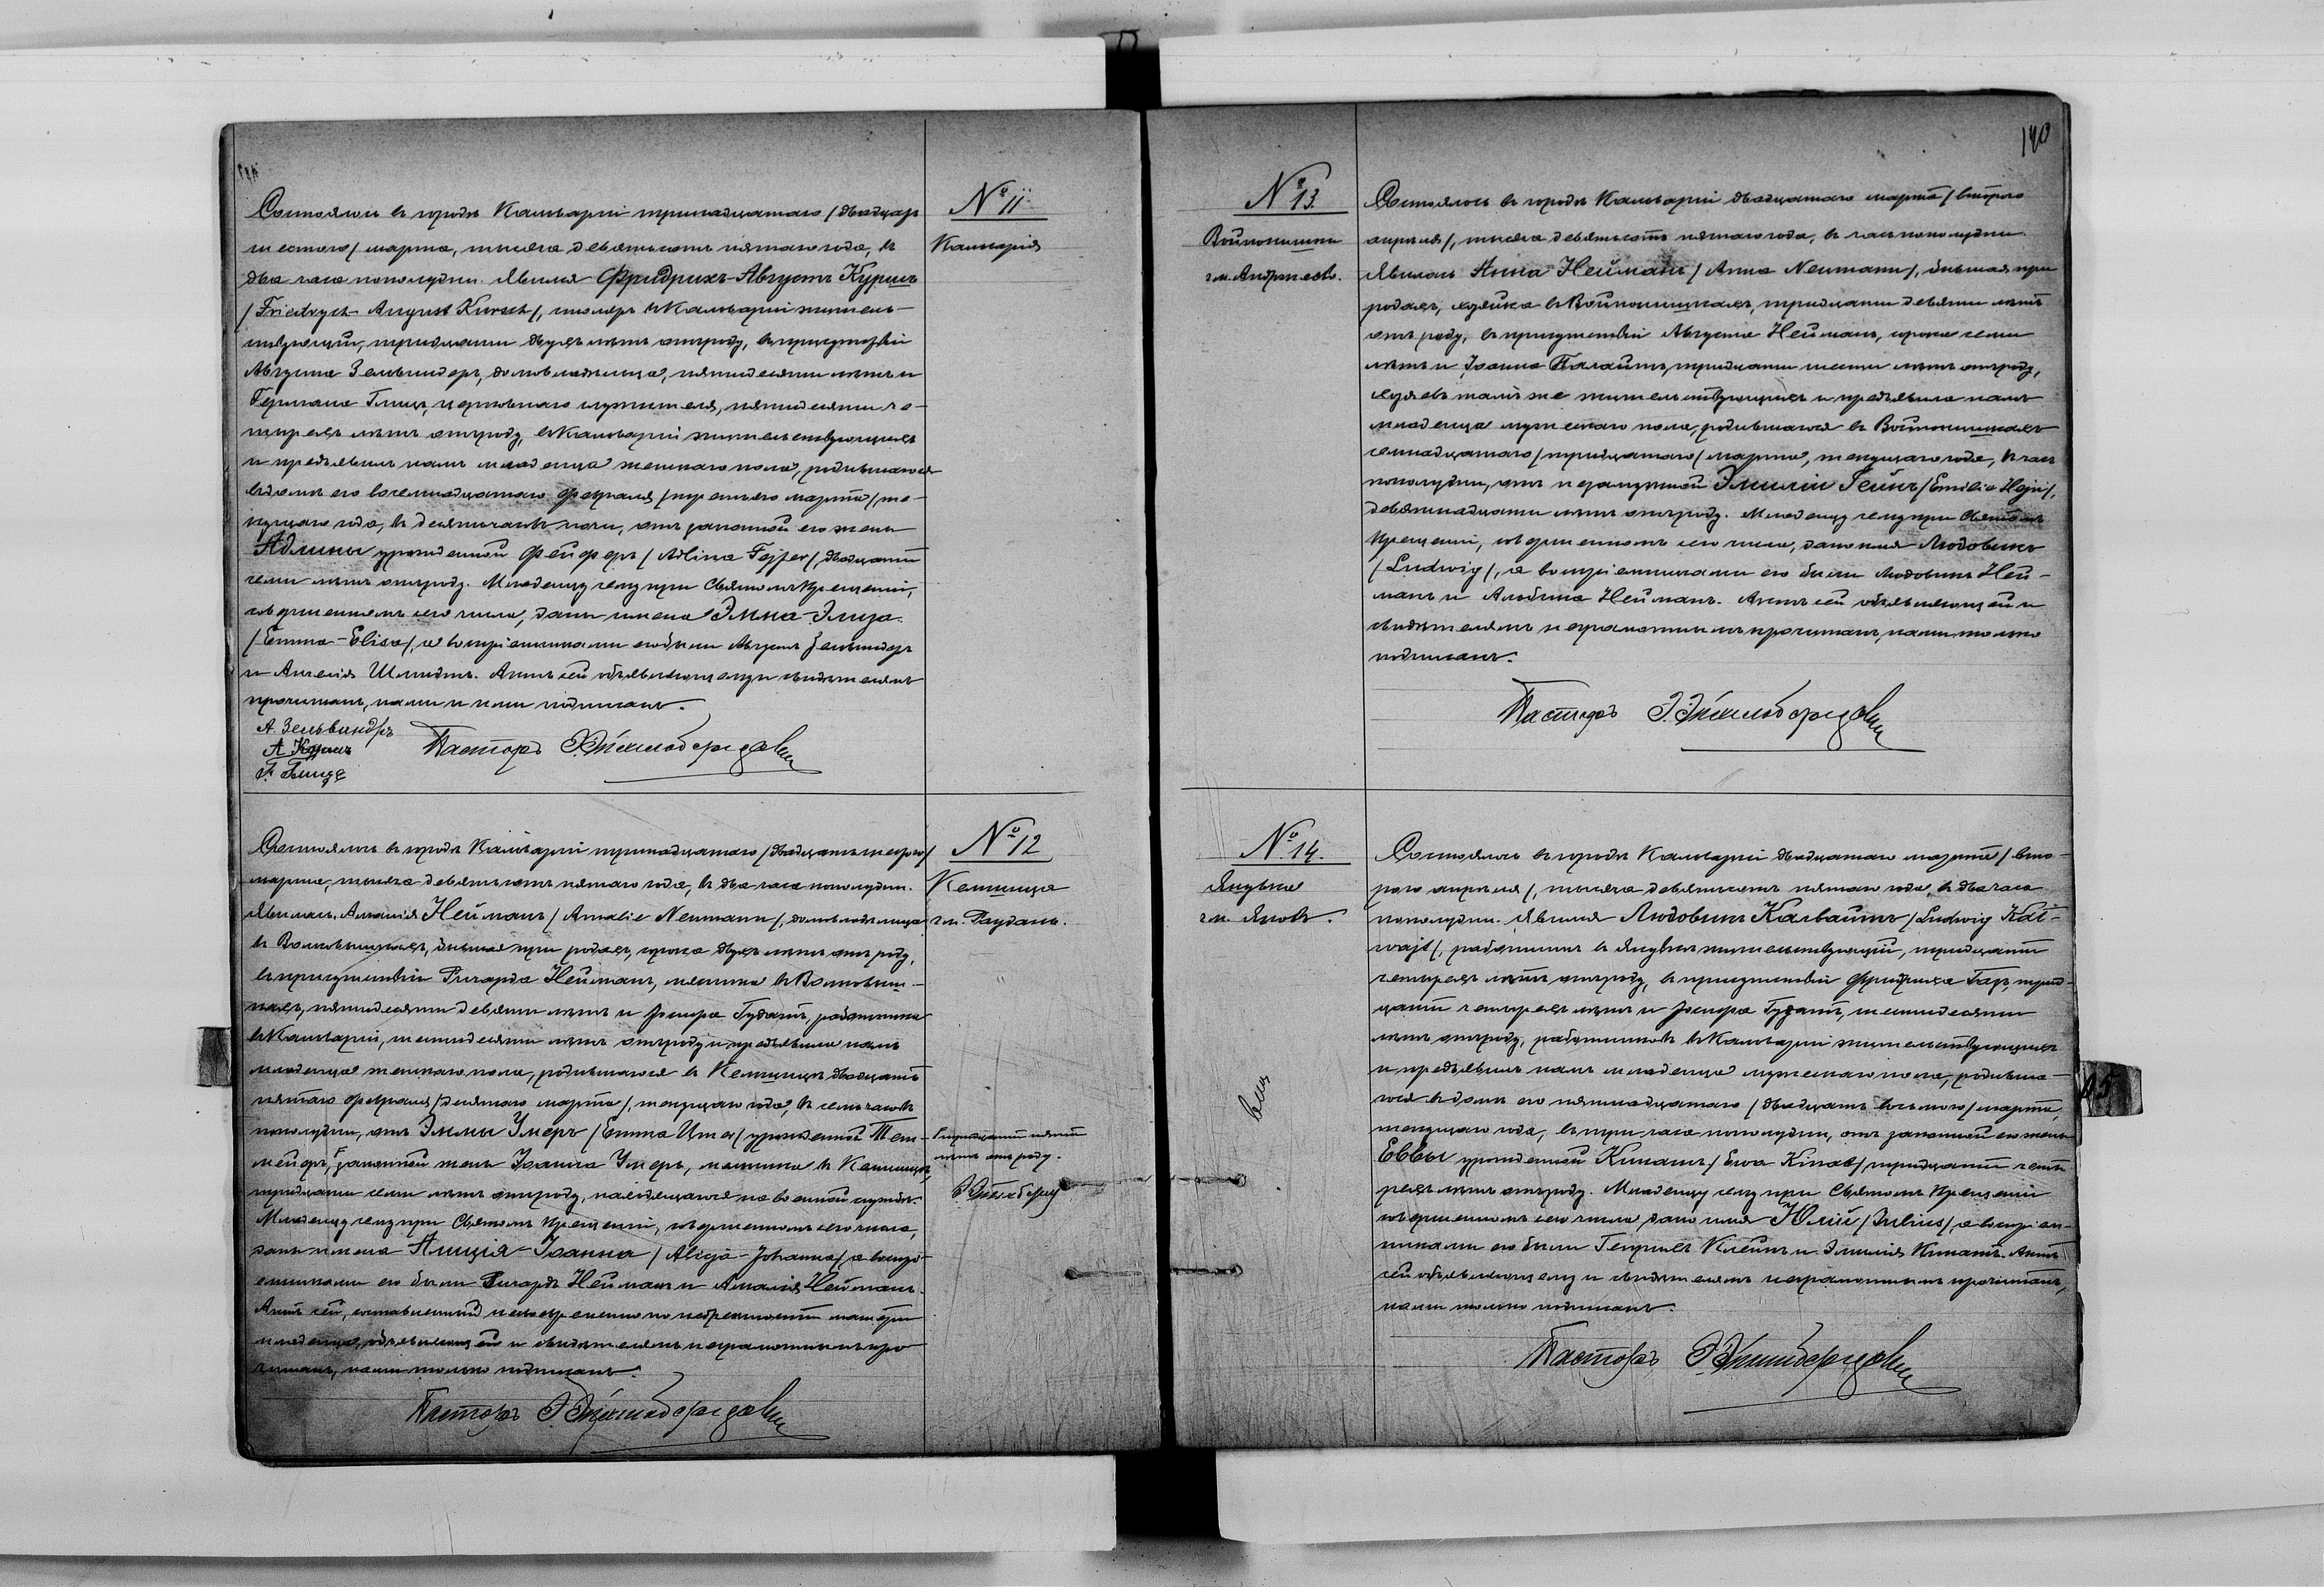 № 11
Кальварія
Состоялось въ городѣ Кальваріи тринадцатаго /двадцать
шестого/ марта, тысяча девятьсотъ пятаго года, въ
два часа пополудни. Явился Фридрихъ-Августъ Куршъ
/Friedrych-August Kursch/, столяръ въ Кальваріи житель-
ствующій, тридцати двухъ лѣтъ отъ роду, въ присутствіи
Августа Зельвиндеръ, домовладѣльца, пятидесяти лѣтъ и
Германа Глинц, церковнаго служителя, пятидесяти че-
тырехъ лѣтъ отъ роду, въ Кальваріи жительствующихъ
и предъявилъ намъ младенца женскаго пола, родившагося
въ домѣ его восемнадцатаго февраля /третьяго марта/ те-
кущаго года, въ десять часовъ ночи, отъ законной его жены
Адлины урожденной Фейферъ /Adlina Fejfer/, двадцати
семи лѣтъ отъ роду. Младенцу сему при Святомъ Крещеніи,
совершенномъ сего числа, даны имена Эмма-Элиза
/Emma-Elisa/, а воспріемниками его были Августъ Зельвиндеръ
и Амелія Шмидтъ. Актъ сей объявляющему и свидѣтелямъ
прочитанъ, нами и ими подписанъ.
А. Зельвиндръ
А Куршъ
Г. Глинце
Пасторъ
№ 12
Кемшица
гм. Раудань.
Состоялось въ городѣ Кальваріи тринадцатаго /двадцать шестого/
марта, тысяча девятьсотъ пятаго года, въ два часа пополудни.
Явилась Амалія Нейманъ /Amalie Neumann/, домовладѣлица
въ Волковышкахъ, бывшая при родахъ, сорока двухъ лѣтъ отъ роду,
въ присутствіи Ричарда Нейманъ, мѣшника въ Волковыш-
кахъ, пятидесяти девяти лѣтъ и Гудатъ, работника
въ Кальваріи, шестидесяти лѣтъ отъ роду и предъявила намъ
младенца женскаго пола, родившагося въ двадцать
пятаго февраля /десятаго марта/, текущаго года, въ семь часовъ
пополудни, отъ Эммы Умеръ /Emma Umer/ урожденной
мейеръ, законной жены Іоанна Умеръ, въ
тридцати семи лѣтъ отъ роду, находящагося на военной службѣ.
Младенцу сему при Святомъ Крещеніи, совершенномъ сего числа,
даны имена Алиція-Іоанна /Alicja-Johanna/, а воспрі-
емниками его были Ричардъ Нейманъ и Амалія Нейманъ.
Актъ сей, составленный несвоевременно по небрежности матери
младенца, объявляющей и свидѣтелямъ неграмотнымъ про-
читанъ, нами только подписанъ.
тридцати пяти
лѣтъ отъ роду.
Пасторъ
140
№ 13.
гм. Андржеево.
Состоялось въ городѣ Кальваріи двадцатаго марта /второго
апрѣля/, тысяча девятьсотъ пятаго года, въ часъ пополудни.
Явилась Анна Нейманъ /Anna Neumann/, бывшая при
родахъ, хозяйка въ тридцати девяти лѣтъ
отъ роду, въ присутствіи Августа Нейманъ, сорока семи
лѣтъ и Іоанна тридцати шести лѣтъ отъ роду,
хозяевъ тамъ же жительствующихъ и предъявила намъ
младенца мужескаго пола, родившагося въ
семнадцатаго /тридцатаго/ марта, текущаго года, въ часъ
пополудни, отъ незамужней Эмиліи Гейнъ /Emilie Hejn/,
девятнадцати лѣтъ отъ роду. Младенцу сему при Святомъ
Крещеніи, совершенномъ сего числа, дано имя Людовикъ
/Ludwig/, а воспріемниками его были Людовикъ Ней-
манъ и Альбина Нейманъ. Актъ сей объявляющей и
свидѣтелямъ неграмотнымъ прочитанъ, нами только
подписанъ.
Пасторъ
№ 14.
гм. Яновъ.
Состоялось въ городѣ Кальваріи двадцатаго марта /вто-
рого апрѣля/, тысяча девятьсотъ пятаго года, въ два часа
пополудни. Явился Людовикъ Кальвайтъ /Ludwig Kal-
wajt/, работникъ въ жительствующій, тридцати
четырехъ лѣтъ отъ роду, въ присутствіи Фридриха трид-
цати четырехъ лѣтъ и Гудатъ, шестидесяти
лѣтъ отъ роду, работниковъ въ Кальваріи жительствующихъ
и предъявилъ намъ младенца мужескаго пола, родивша-
гося въ домѣ его пятнадцатаго /двадцать восьмого/ марта,
текущаго года, въ три часа пополудни, отъ законной его жены
Еввы урожденной Кинатъ /Ewa Kinat/, тридцати четы-
рехъ лѣтъ отъ роду. Младенцу сему при Святомъ Крещеніи
совершенномъ сего числа дано имя Юлій /Julius/, а воспріем-
никами его были Генрихъ Клейнъ и Эмилія Кинатъ. Актъ
сей объявляющему и свидѣтелямъ неграмотнымъ прочитанъ,
нами только подписанъ.
Пасторъ